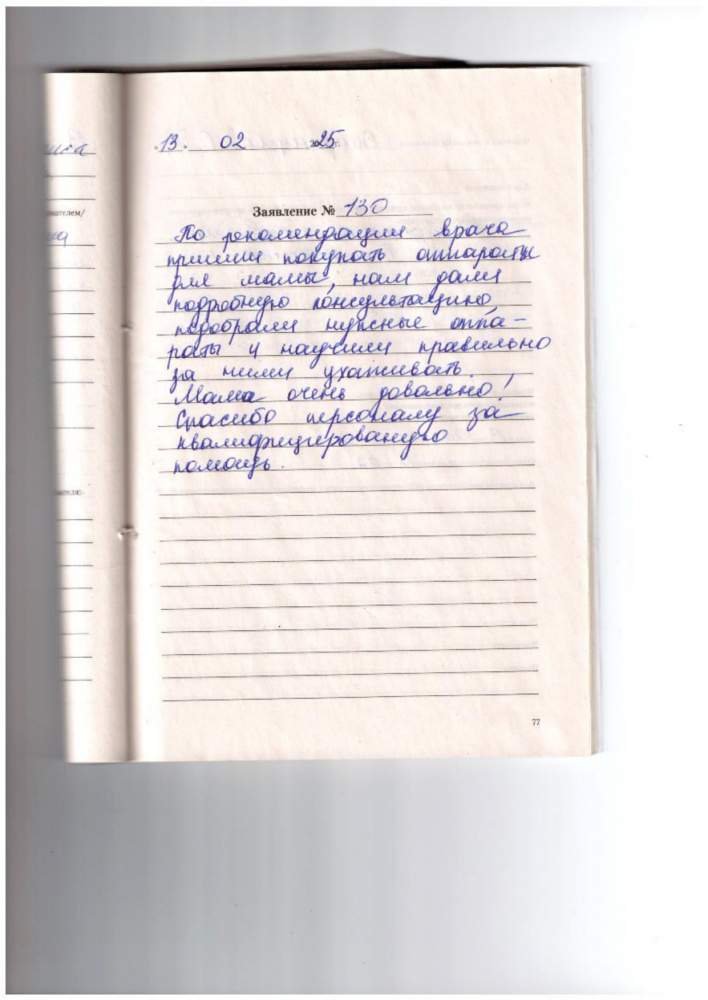 13. 02 2025
Заявление № 130
По рекомендации врача
пришли покупать аппараты
для мамы, нам дали
подробную консультацию,
подобрали нужные аппа-
раты и научили правильно
за ними ухаживать.
Мама очень довольна!
Спасибо персоналу за
квалифицированую
помощь.
77